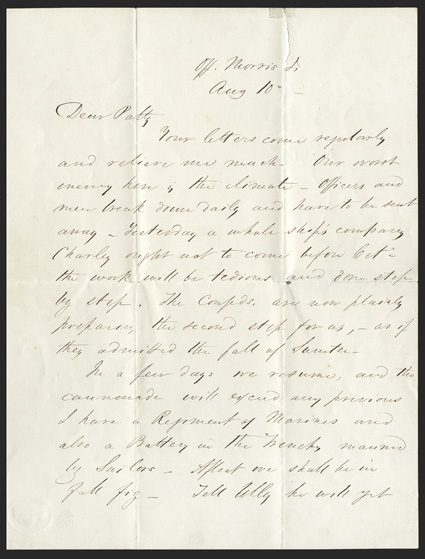 Off. Morris I.
Aug 10th
Dear Patty
Your letters come regularly
and relieve me much. Our worst
enemy here is the climate - Officers and
men break down daily and have to be sent
away - Yesterday a whole ship's company
Charley ought not to come before Oct -
the work will be tedious and done step
by step. The Confeds. are now plainly
preparing the second step for us, - as if
they admitted the fall of Sumter -
In a few days we resume, and the
cannonade will exceed any previous
I have a Regiment of Marines and
also a Battery in the trenches manned
by Sailors - Afloat we shall be in
full fig - Tell Ully he will yet